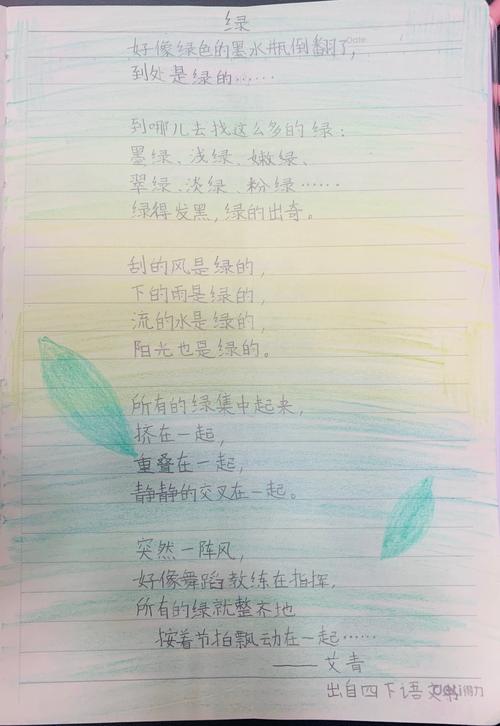 绿
Date
好像绿色的墨水瓶倒翻了,
到处是绿的……
到哪儿去找这么多的绿:
墨绿、浅绿、嫩绿、
翠绿、淡绿、粉绿……
绿得发黑,绿的出奇。
刮的风是绿的,
下的雨是绿的,
流的水是绿的,
阳光也是绿的。
所有的绿集中起来,
挤在一起,
重叠在一起,
静静的交叉在一起。
突然一阵风,
好像舞蹈教练在指挥,
所有的绿就整齐地
按着节拍飘动在一起……
——艾青
出自四下语文书
得力